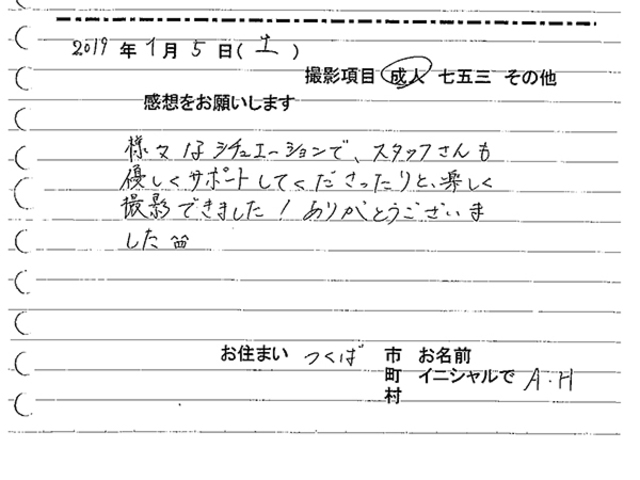 2019年1月5日(土)
撮影項目 成人 七五三 その他
感想をお願いします
様々なシチュエーションで、スタッフさんも
優しくサポートしてくださったりと、楽しく
撮影できました!ありがとうございま
した^^
お住まい つくば 市 お名前
町 イニシャルで A.H
村